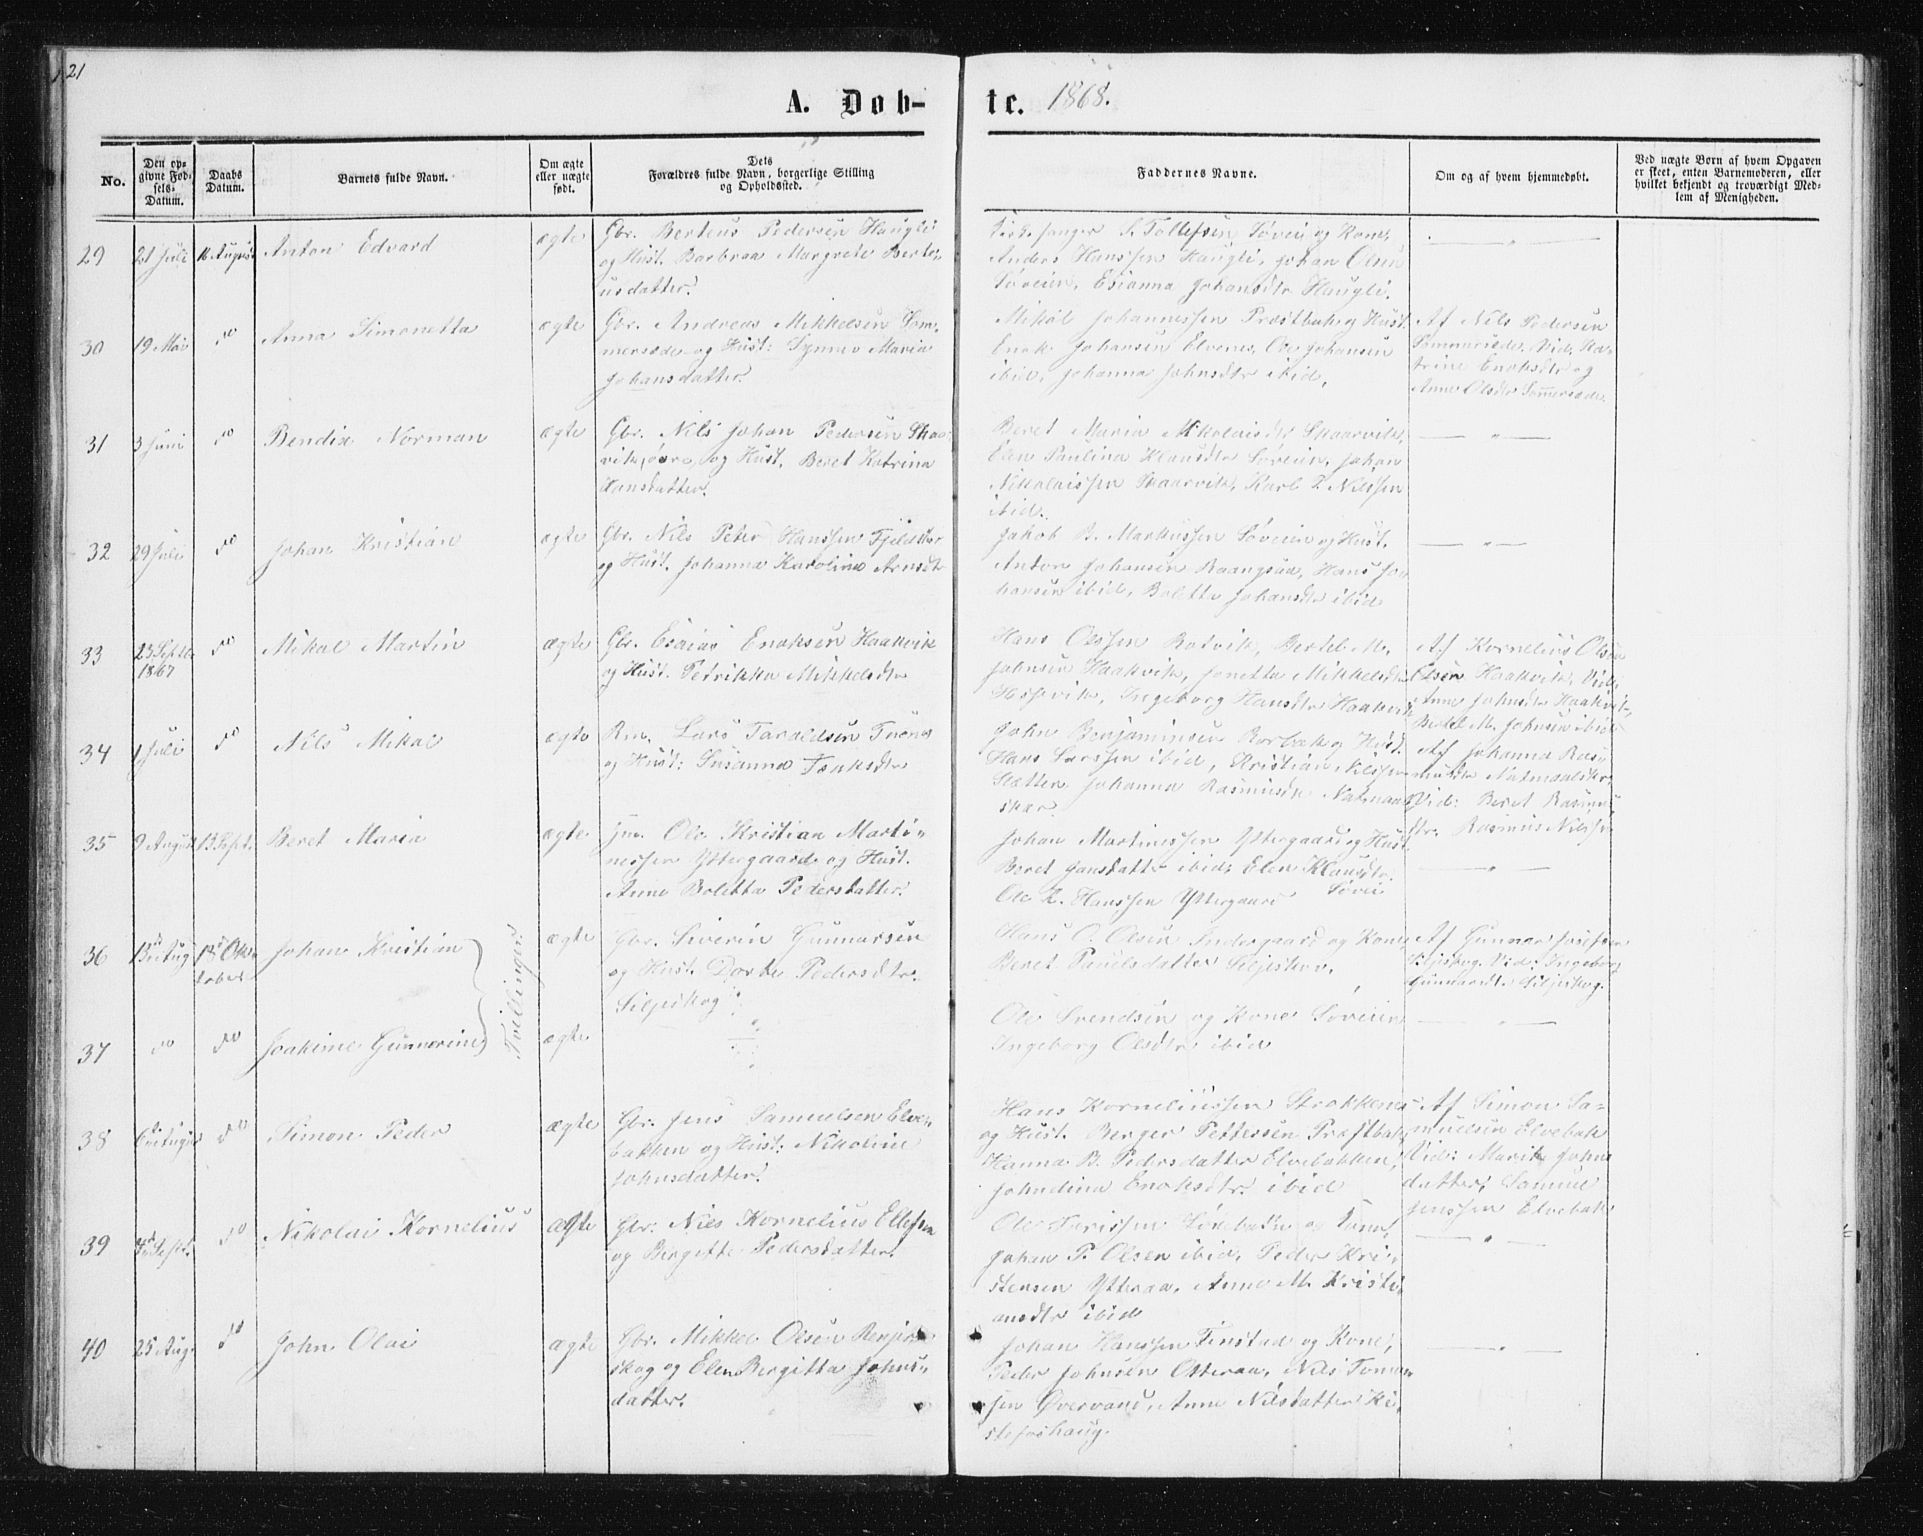 21
A. Døb-
te. 1868.
No.
Den op-
givne Fød-
sels-
Datum.
Daabs
Datum.
Barnets fulde Navn.
Om ægte
eller uægte
født.
Dets
Forældres fulde Navn, borgerlige Stilling
og Opholdssted.
Faddernes Navne.
Om og af hvem hjemmedøbt.
Ved uægte Børn af hvem Opgaven
er skeet, enten Barnemoderen, eller
hvilket bekjendt og troværdigt Med-
lem af Menigheden.
29 21 Juli 16 August Anton Edvard ægte
Gbr. Berteus Pedersen Haugli
og Hust. Barbraa Margrete Berte-
usdatter.
Kirkesanger S. Tollefsen Søvein og Kone,
Anders Hanssen Haugli, Johan Olsen
Søveien, Esianna Johansdtr Haugli.
30 19 Mai do Anna Simonetta ægte
Gbr. Andreas Mikkelsen Som-
mersæde og Hust: Synnev Maria
Johansdatter.
Mikal Johannessen Præstbak og Hust.
Enok Johansen Elvenes, Ole Johansen
ibid, Johanna Johnsdtr ibid.
Af Nils Pedersen
Sommersæde. Vid. Ka-
trine Enoksdtr og
Anne Olsdtr Sommersæde.
31 3 Juni do Bendix Norman ægte
Gbr. Nils Johan Pedersen Skaar-
vik, øvre, og Hust. Beret Katrina
Hansdatter.
Beret Maria Nikolaisdtr Skaarvik,
Elen Paulina Klausdtr Søveien, Johan
Nikolaissen Skaarvik, Karl P. Nilssen
ibid.
32 29 Juli do Johan Kristian ægte
Gbr. Nils Peter Hanssen Fjeldsæter
og Hust. Johanna Karolina Arnsdtr
Jakob B. Markussen Søveien og Hust.
Anton Johansen Raangsua, Hans Jo-
hansen ibid, Boletta Johansdtr ibid
33 23 Septbr
1867 do Mikal Martin ægte
Gbr. Esaias Enoksen Haakvik
og Hust. Petrikka Mikkelsdtr
Hans Olssen Rotvik, Bertel M.
Johnsen Haakvik, Jonetta Mikkelsdtr
Haakvik, Ingeborg Hansdtr Haakvik
Af Kornelius Olsen
Olsen Haakvik, Vid.
Anne Johnsdtr Haakvik,
Bertel M. Johnsen ibid
34 1 Juli do Nils Mikal ægte
Rm. Lars Taraldsen
og Hust: Susanna Isaksdtr
John Benjaminsen Rorbæk og Hust.
Hans Larssen ibid, Kristian Nilssen
Slætten Johanna Rasmusdtr Natmaals
skar
Af Johanna Ras-
musdtr Natmaalskar,
Vid: Beret Rasmus
dtr. Rasmus Nilssen
35 9 August 13 Sept. Beret Maria ægte
Jm. Ole Kristian Marti-
nessen Yttergaard og Hust.
Anne Boletta Pedersdatter.
Johan Martinessen Yttergaard og Hust.
Beret Jansdatter ibid, Elen Klausdtr.
Søvei
Ole L. Hanssen Yttergaard
36 13de Aug 18de Ok-
tober Johan Kristian ægte
Gbr. Siverin Gunnarsen
og Hust. Dorte Pedersdtr.
Siljeskog
Tvillinger.
Hans O. Olsen Indergaard og Kone,
Beret Paulsdatter Siljeskov.
Af Gunnar Josefsen
Siljeskog. Vid: Ingeborg
Gunnarsdtr Siljeskog.
37 do do Joakime Gunnarine ægte
Ole Svendsen og Kone Søveien
Ingeborg Olsdtr ibid
38 6te August do Simon Peder ægte
Gbr. Jens Samuelsen Elve-
bakken og Hust: Nikoline
Johnsdatter.
Hans Korneliussen Strokkenes
og Hust. Berger Pettersen Præstbak,
Hanna B. Pedersdatter Elvebakken,
Johndina Enoksdtr. ibid
Af Simon Sa-
muelsen Elvebak
Vid: Marit Johns
datter, Samuel
Jenssen Elvebak
39 4de Sept. do Nikolai Kornelius ægte
Gbr. Nils Kornelius Ellefsen
og Bergitte Pedersdatter.
Johan P. Olsen ibid, Peder Kri-
stensen Ytteraa, Anne M. Kristi-
ansdtr ibid
40 25 Aug do John Olai ægte
Gbr. Mikkel Olsen Renjes-
skog og Elen Bergitta Johns-
datter.
Johan Hanssen Finstad og Kone,
Peder Johnsen Otteraa, Nils Tomas-
sen Øvervand, Anne Nilsdatter Ki-
stefoshaug.